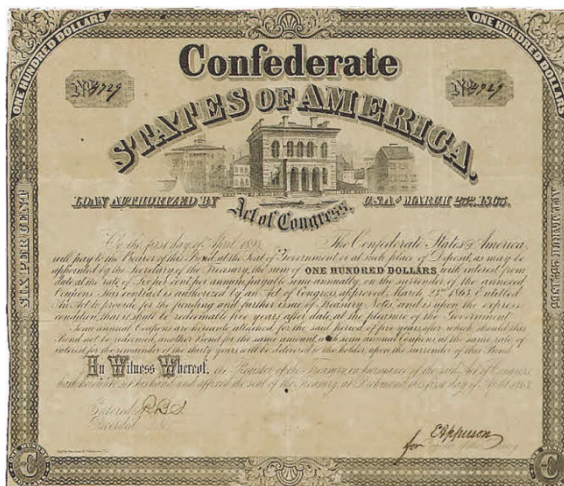 ONE HUNDRED DOLLARS
ONE HUNDRED DOLLARS
Confederate
No 3729
No 3729
STATES OF AMERICA.
LOAN AUTHORIZED BY
Act of Congress,
C.S.A. OF MARCH 23RD. 1863.
SIX PER CENT
On the first day of April, The Confederate States of America
will pay to the Bearer of this Bond, at the Seat of Government or at such place of Deposit, as may be
appointed by the Secretary of the Treasury, the sum of ONE HUNDRED DOLLARS with interest from
date at the rate of Six per cent per annum, payable semi annually, on the surrender of the annexed
Coupons. This contract is authorized by an Act of Congress approved, March 23rd 1863 entitled
"An Act to provide for the funding and further issue of Treasury Notes" and is upon the express
condition, that it shall be redeemable five years after date, at the pleasure of the Government.
Semi annual Coupons are hereunto attached for the said period of five years, after which, should this
Bond not be redeemed, another Bond for the same amount with semi annual Coupons at the same rate of
interest for the remainder of the thirty years will be delivered to the holder, upon the surrender of this Bond.
In Witness Whereof, the Register of the Treasury, in pursuance of the said Act of Congress
hath hereunto set his hand and affixed the seal of the Treasury, at Richmond, this first day of April 1863.
Entered
Recorded
for E Apperson
C
C